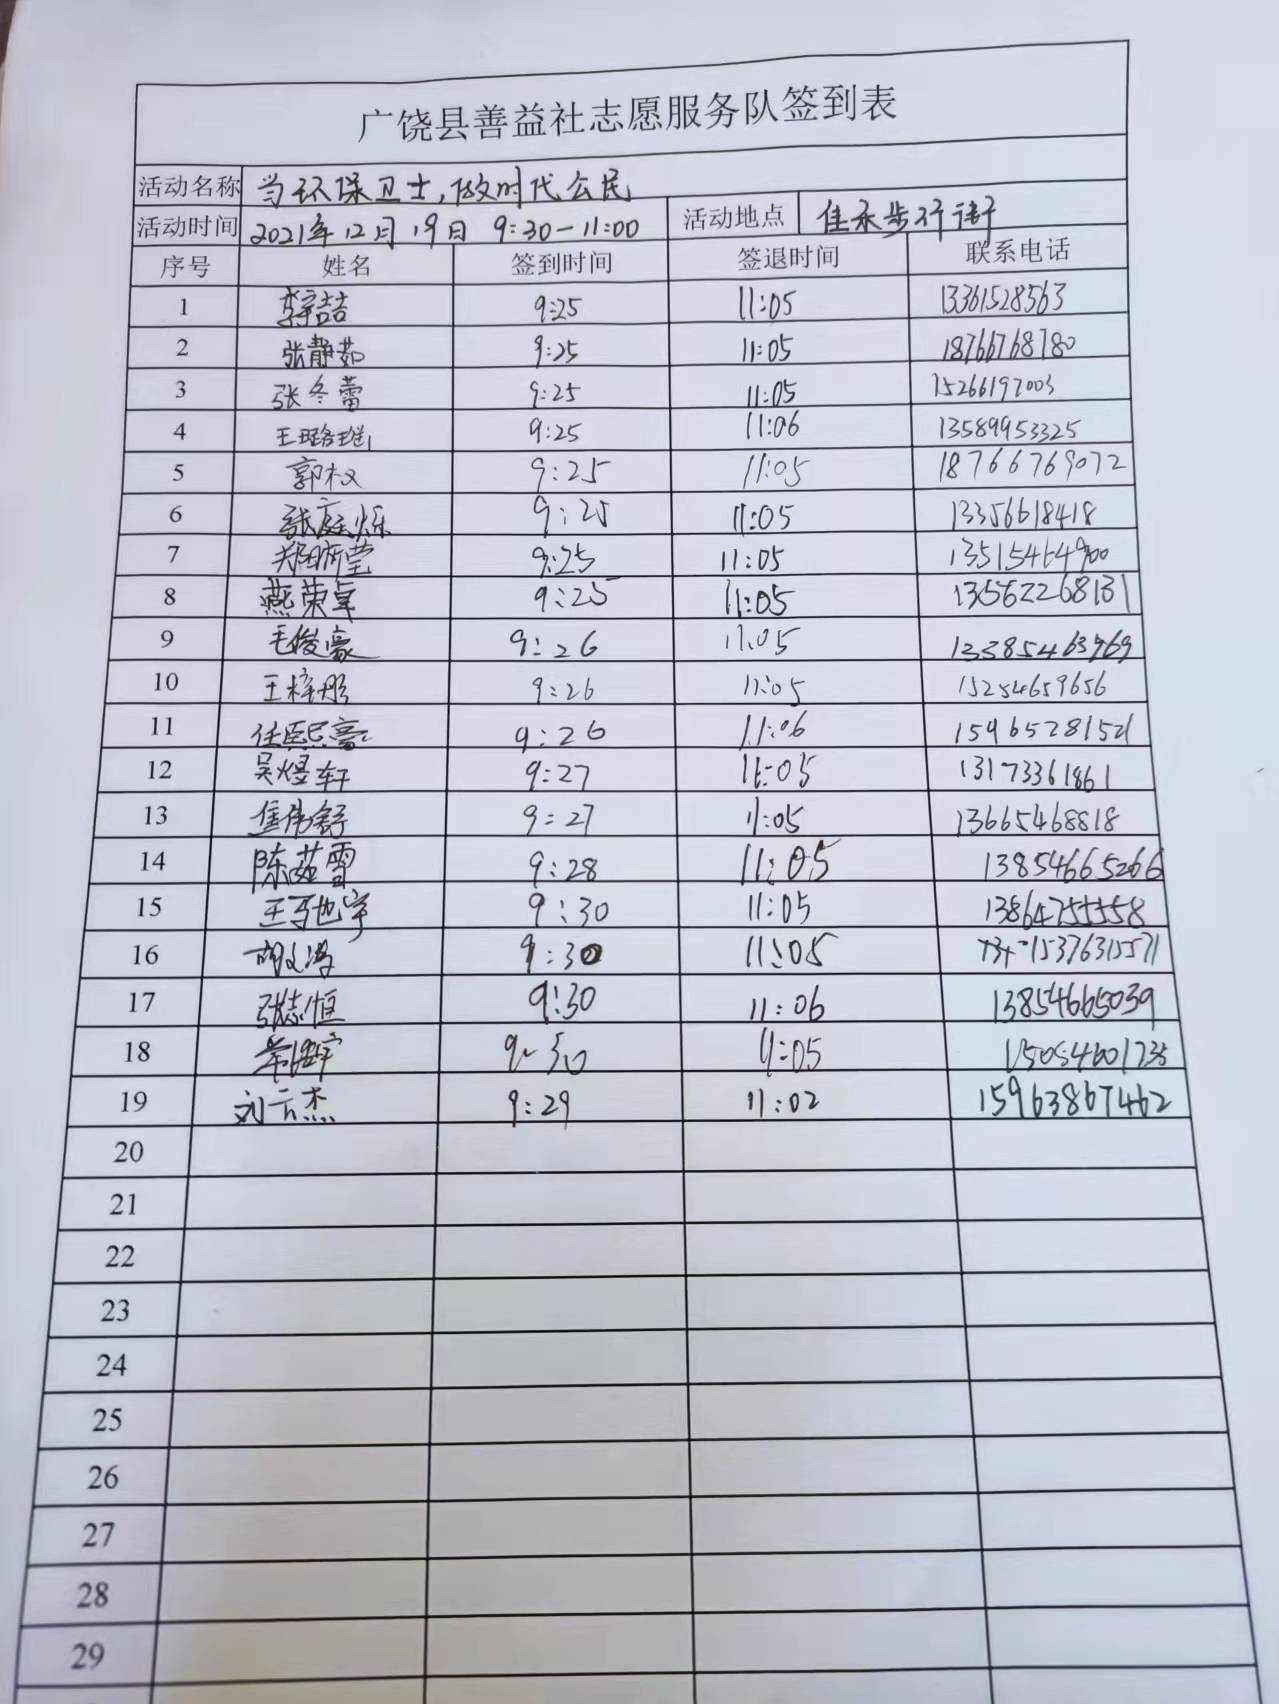 广饶县善益社志愿服务队签到表
活动名称 当环保卫士,做时代公民
活动时间 2021年12月19日 9:30-11:00 活动地点 佳永步行街
序号 姓名 签到时间 签退时间 联系电话
1 9:25 11:05 13361528563
2 张静茹 9:25 11:05 18766768780
3 张冬蕾 9:25 11:05 15266197003
4 王璐瑶 9:25 11:06 13589953325
5 郭权 9:25 11:05 18766769072
6 张庭烁 9:25 11:05 13356618418
7 郑昕莹 9:25 11:05 13515464900
8 燕荣卓 9:25 11:05 13562268131
9 毛俊豪 9:26 11:05 13385463969
10 王梓彤 9:26 11:05 15254659656
11 任熙豪 9:26 11:06 15965281521
12 吴煜轩 9:27 11:05 13173361861
13 焦伟舒 9:27 11:05 13665468818
14 陈茹雪 9:28 11:05 13854665266
15 王驰宇 9:30 11:05 13864755558
16 9:30 11:05 15376315571
17 张志恒 9:30 11:06 13854665039
18 9:30 11:05
19 刘云杰 9:29 11:02 15963867462
20
21
22
23
24
25
26
27
28
29